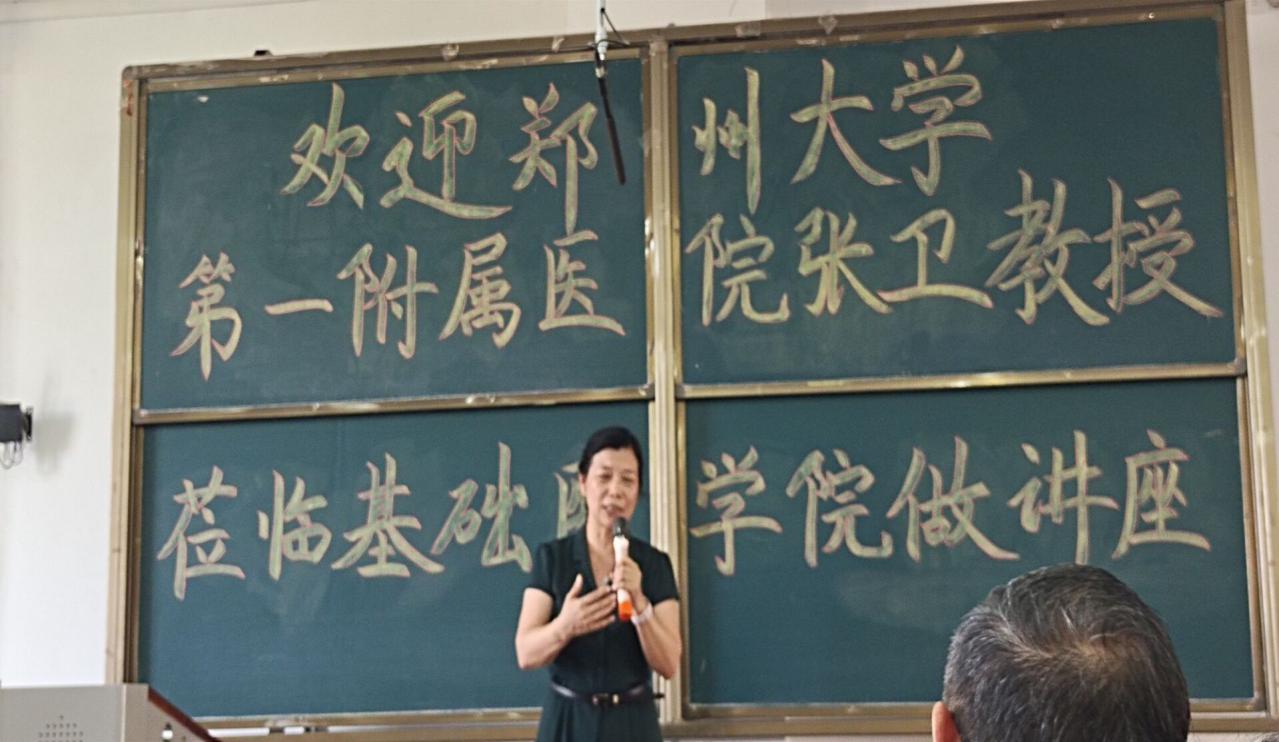 欢迎郑州大学
第一附属医院张卫教授
莅临基础医学院做讲座